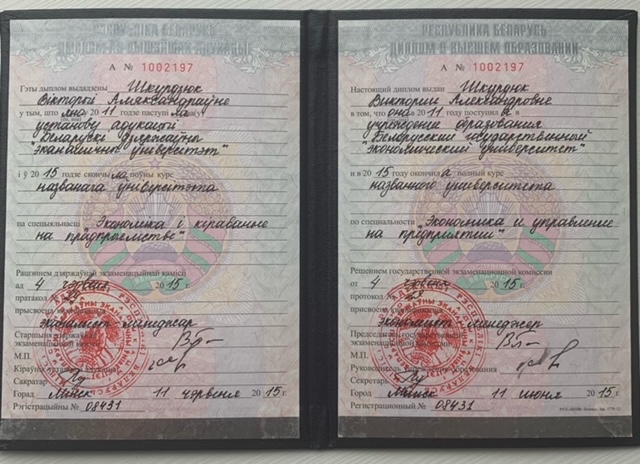 РЭСПУБЛІКА БЕЛАРУСЬ
ДЫПЛОМ АБ ВЫШЭЙШАЙ АДУКАЦЫІ
А № 1002197
Гэты дыплом выдадзены Шкурдзюк
Вікторыі Аляксандраўне
у тым, што яна у 20 11 годзе паступі ла
установу адукацыі
"Беларускі дзяржаўны
эканамічны універсітэт"
і ў 20 15 годзе скончы ла поўны курс
названага універсітэта
па спецыяльнасці "Эканоміка і кіраванне
на прадпрыемстве"
Рашэннем дзяржаўнай экзаменацыйнай камісіі
ад 4 чэрвеня 20 15 г.
пратакол №
прысвоена
эканаміст-менеджэр
Старшыня дзяржаўнай
экзаменацыйнай камісіі
М.П.
Кіраўнік
Сакратар
Горад Мінск 11 чэрвеня 20 15 г.
Рэгістрацыйны № 08431
РЕСПУБЛИКА БЕЛАРУСЬ
ДИПЛОМ О ВЫСШЕМ ОБРАЗОВАНИИ
А № 1002197
Настоящий диплом выдан Шкурдюк
Виктории Александровне
в том, что она в 20 11 году поступил а в
учреждение образования
"Белорусский государственный
экономический университет"
и в 20 15 году окончил а полный курс
названного университета
по специальности "Экономика и управление
на предприятии"
Решением государственной экзаменационной комиссии
от 4 июня 20 15 г.
протокол №
присвоена
экономист-менеджер
Председатель государственной
экзаменационной комиссии
М.П.
Руководитель
Секретарь
Город Минск 11 июня 20 15 г.
Регистрационный № 08431